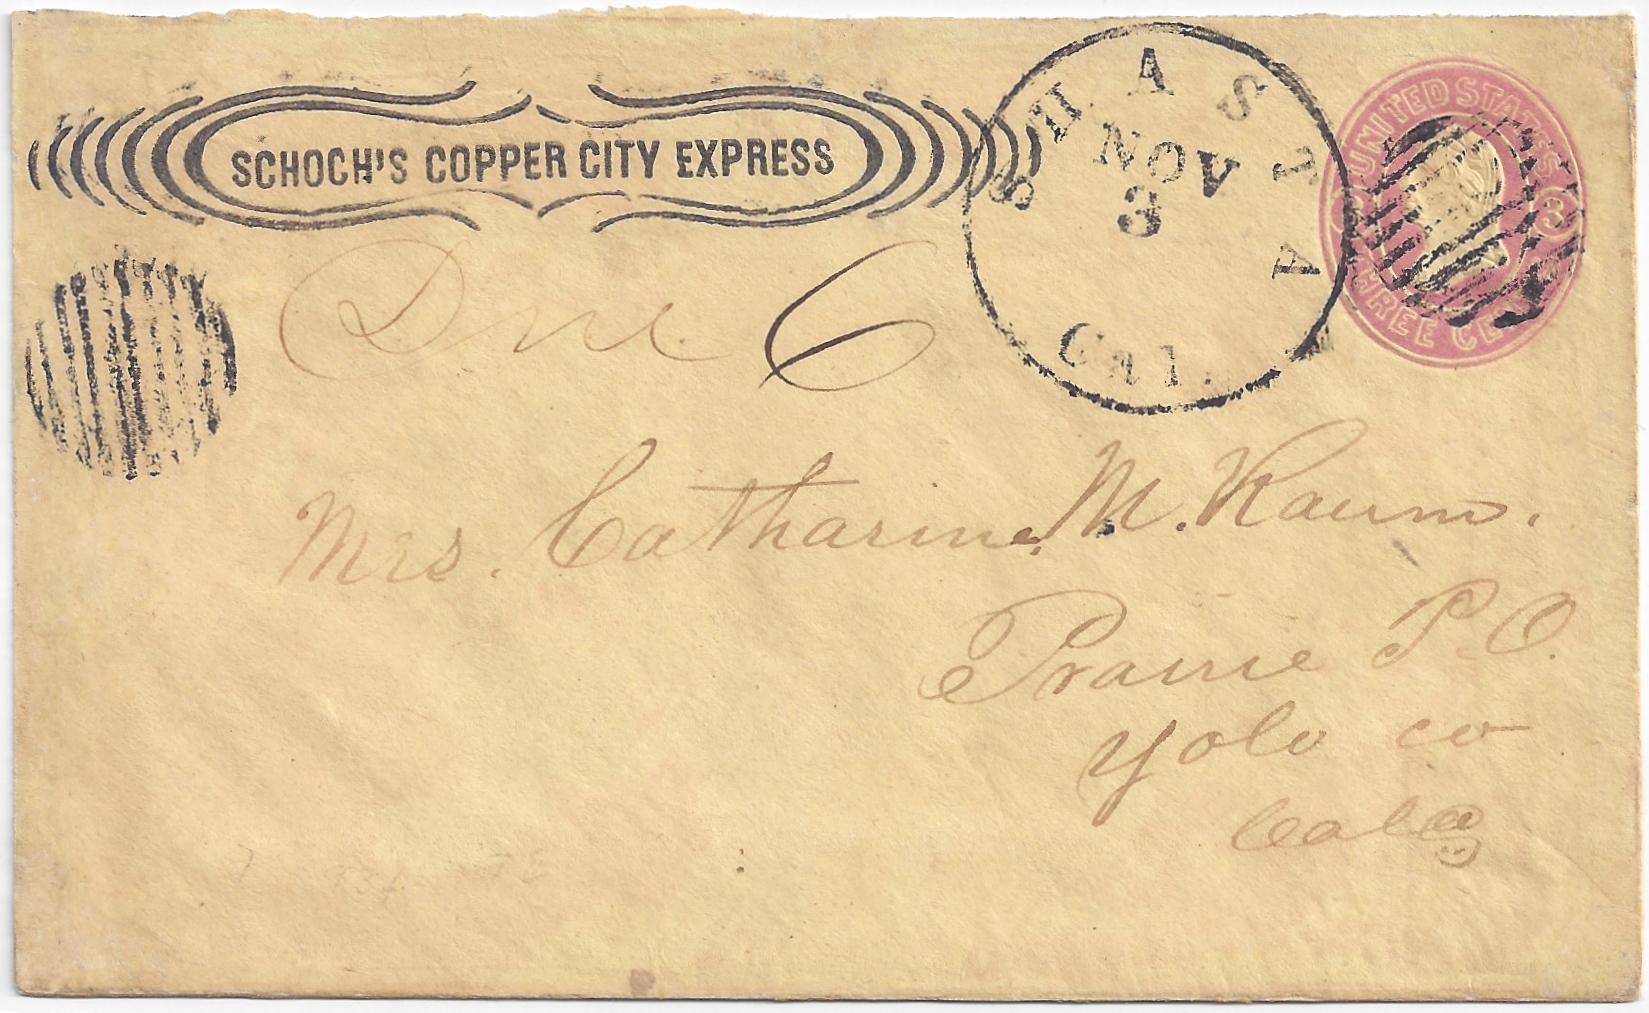 SCHOCH'S COPPER CITY EXPRESS
SHASTA
NOV
3
Cal.
UNITED STATES
3 3
THREE CE
Due 6
Mrs. Catharine M. Raum.
Prairie P.O.
Yolo co
Cala